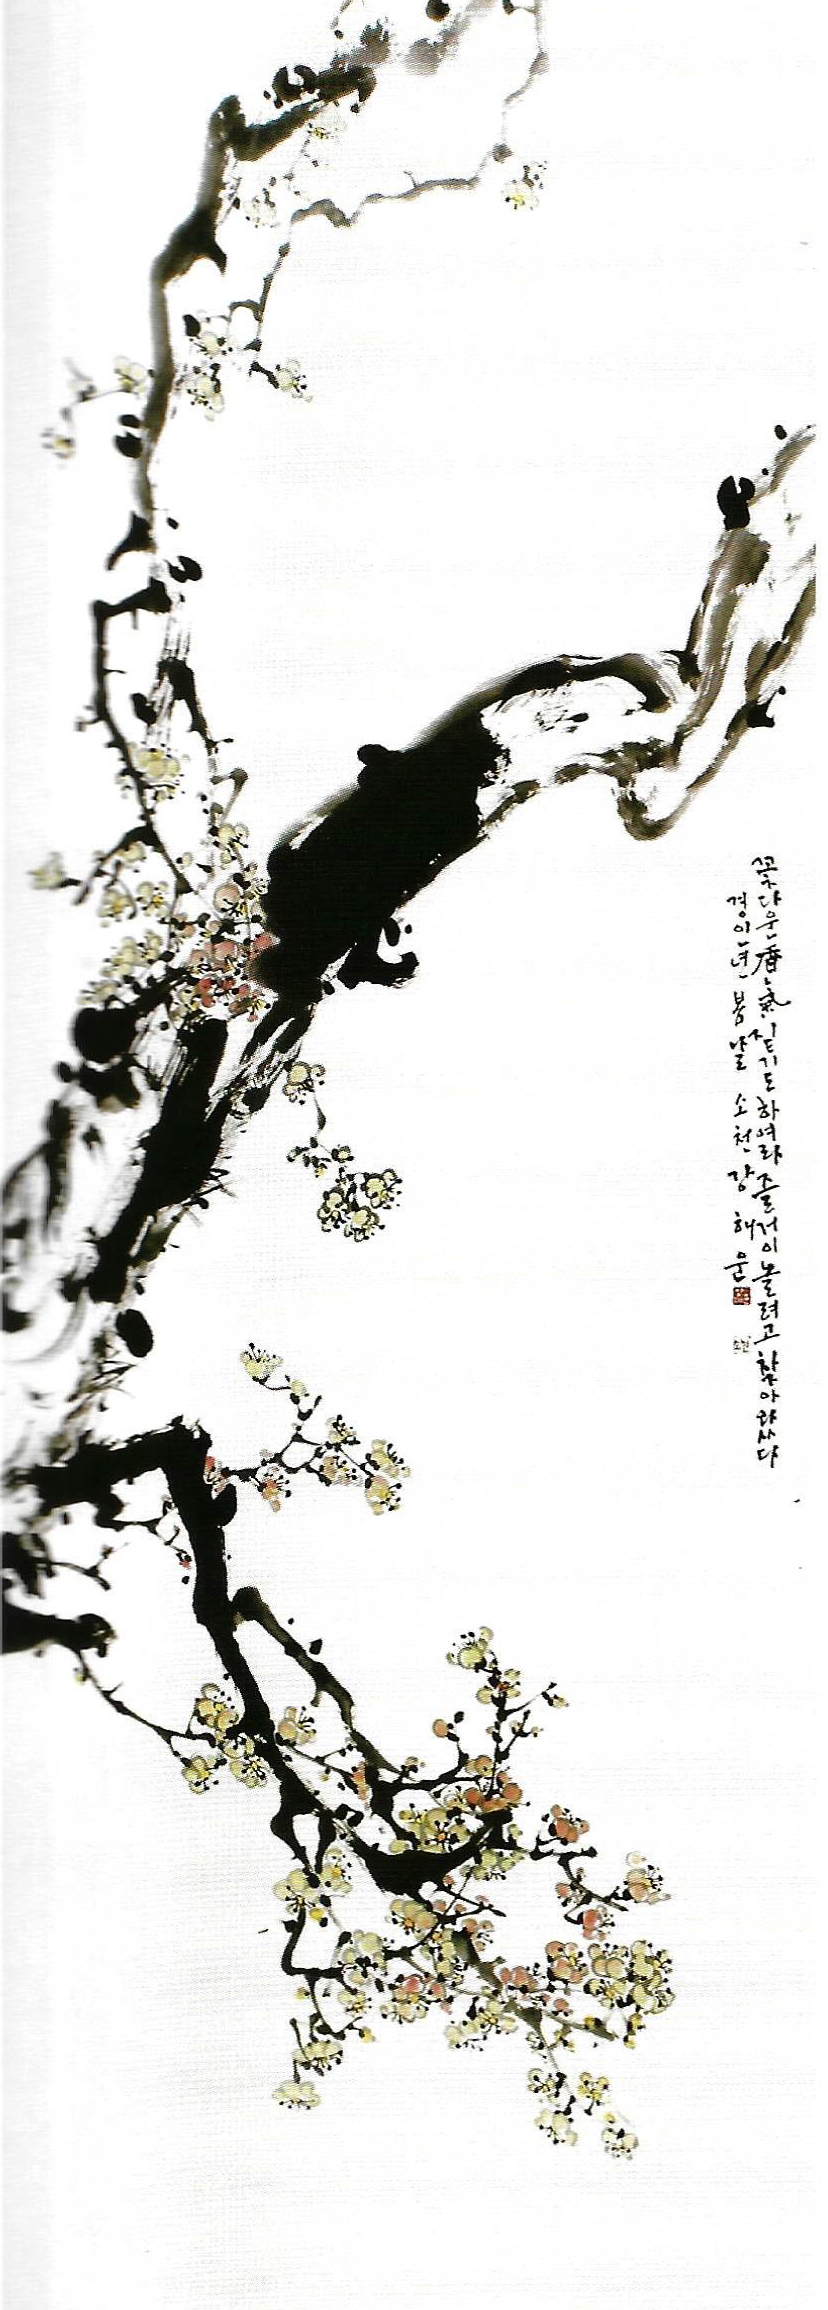 꽃다운 香氣 짙기도 하여라 즐거이 놀려고 찾아 와 있다
경인년 봄날 소천 강해운